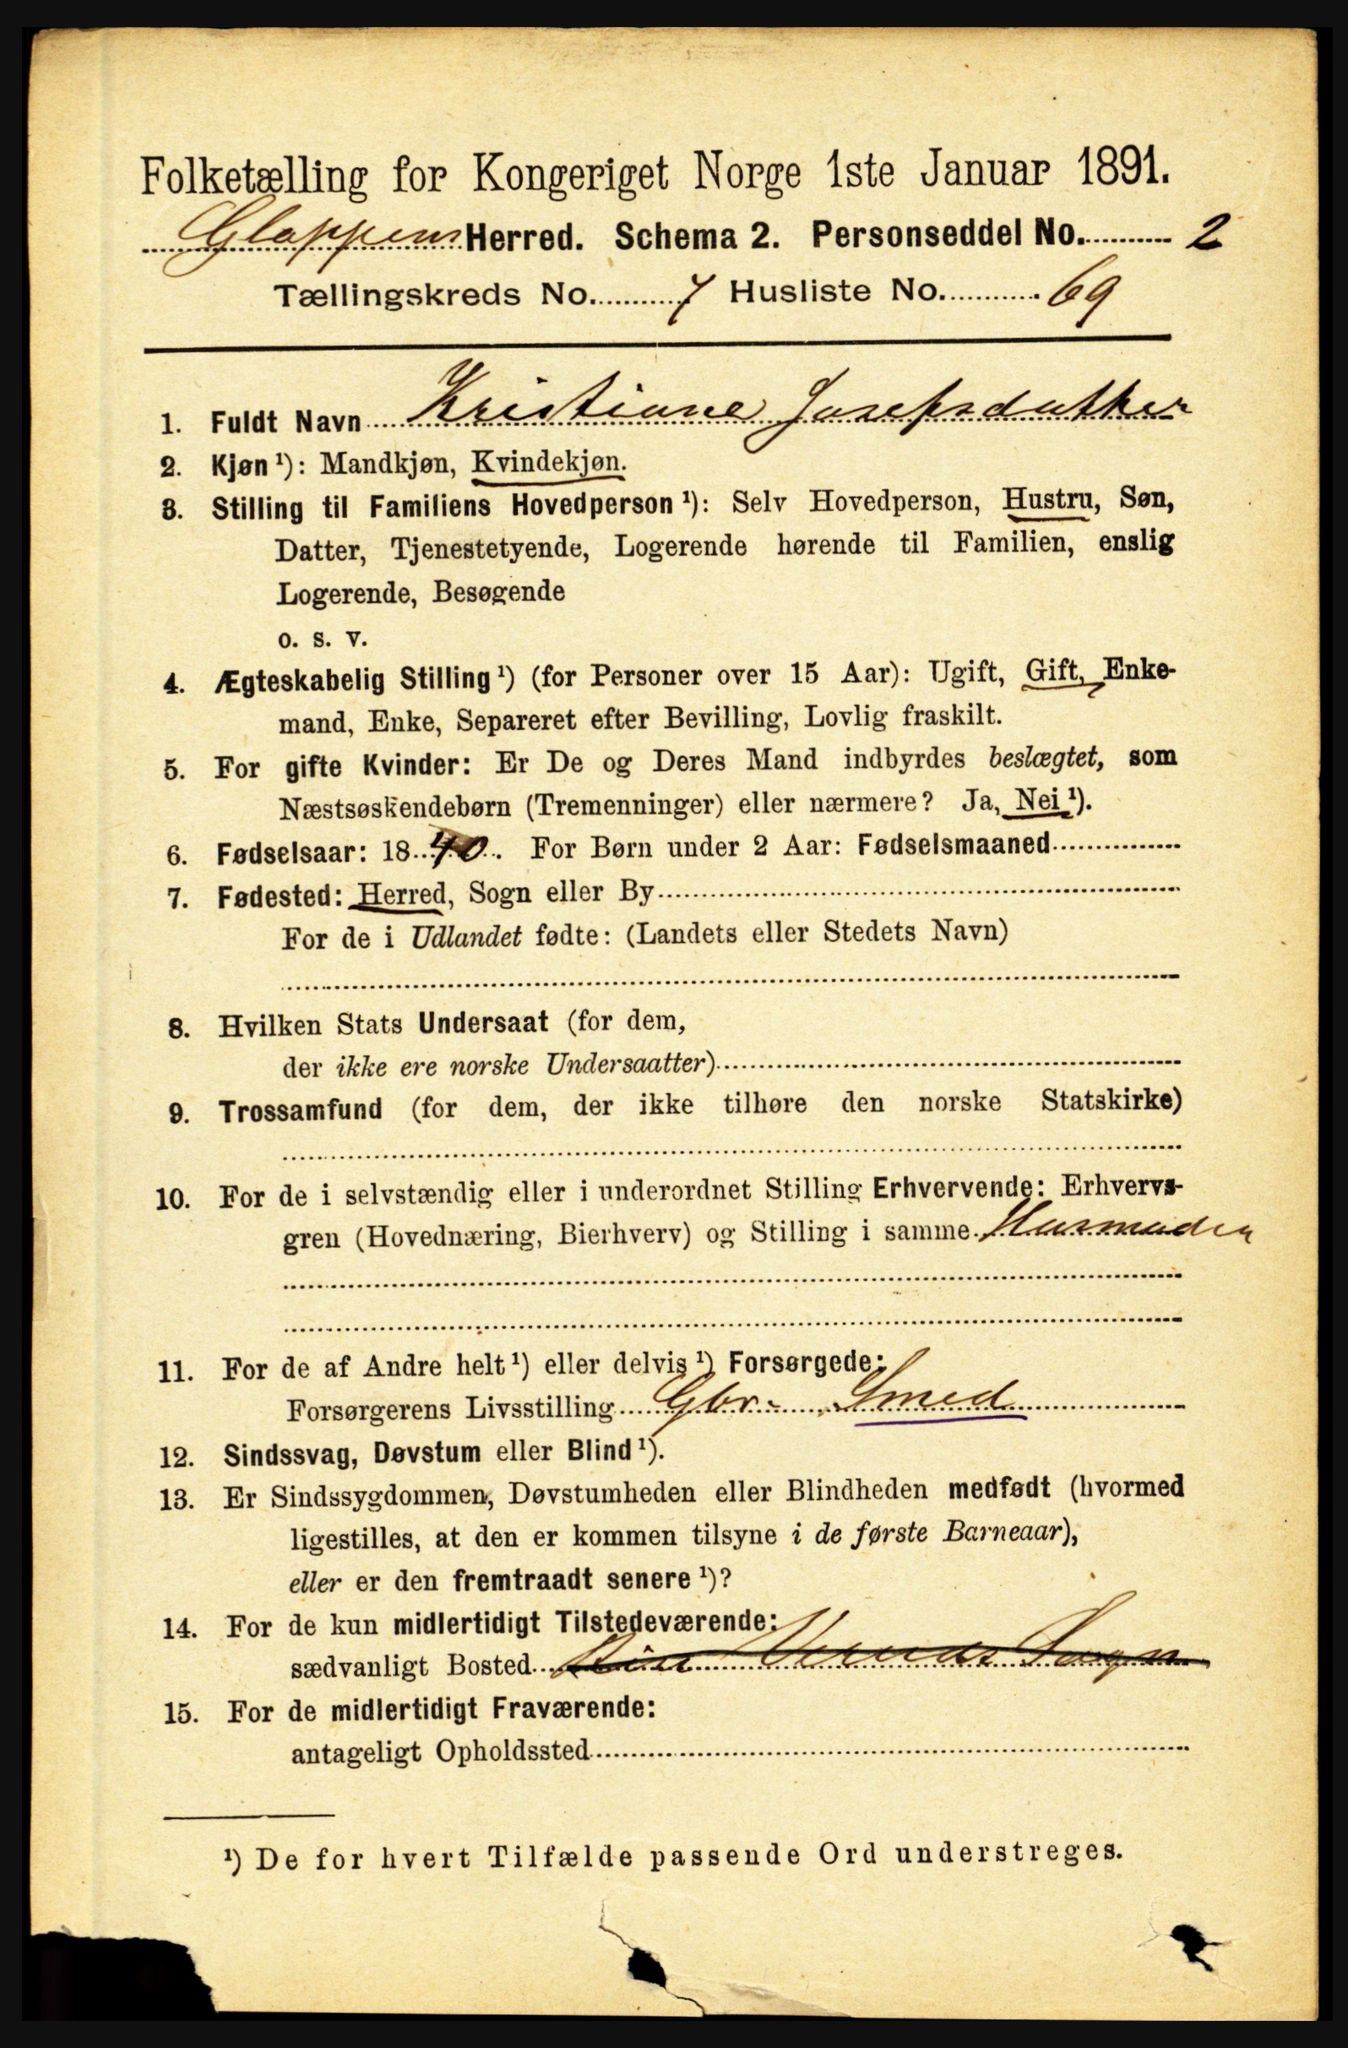 Folketælling for Kongeriget Norge 1ste Januar 1891.
Gloppens Herred. Schema 2. Personseddel No. 2
Tællingskreds No. 7 Husliste No. 69
1. Fuldt Navn Kristiane Josefsdatter
2. Kjøn ¹): Mandkjøn, Kvindekjøn.
3. Stilling til Familiens Hovedperson ¹): Selv Hovedperson, Hustru, Søn,
Datter, Tjenestetyende, Logerende hørende til Familien, enslig
Logerende, Besøgende
o. s. v.
4. Ægteskabelig Stilling ¹) (for Personer over 15 Aar): Ugift, Gift, Enke-
mand, Enke, Separeret efter Bevilling, Lovlig fraskilt.
5. For gifte Kvinder: Er De og Deres Mand indbyrdes beslægtet, som
Næstsøskendebørn (Tremenninger) eller nærmere? Ja, Nei ¹).
6. Fødselsaar: 1840. For Børn under 2 Aar: Fødselsmaaned
7. Fødested: Herred, Sogn eller By
For de i Udlandet fødte: (Landets eller Stedets Navn)
8. Hvilken Stats Undersaat (for dem,
der ikke ere norske Undersaatter)
9. Trossamfund (for dem, der ikke tilhøre den norske Statskirke)
10. For de i selvstændig eller i underordnet Stilling Erhvervende: Erhvervs-
gren (Hovednæring, Bierhverv) og Stilling i samme Husmoder
11. For de af Andre helt ¹) eller delvis ¹) Forsørgede:
Forsørgerens Livsstilling Gbr. Smed
12. Sindssvag, Døvstum eller Blind ¹).
13. Er Sindssygdommen, Døvstumheden eller Blindheden medfødt (hvormed
ligestilles, at den er kommen tilsyne i de første Barneaar),
eller er den fremtraadt senere ¹)?
14. For de kun midlertidigt Tilstedeværende:
sædvanligt Bosted Sogn
15. For de midlertidigt Fraværende:
antageligt Opholdssted
¹) De for hvert Tilfælde passende Ord understreges.